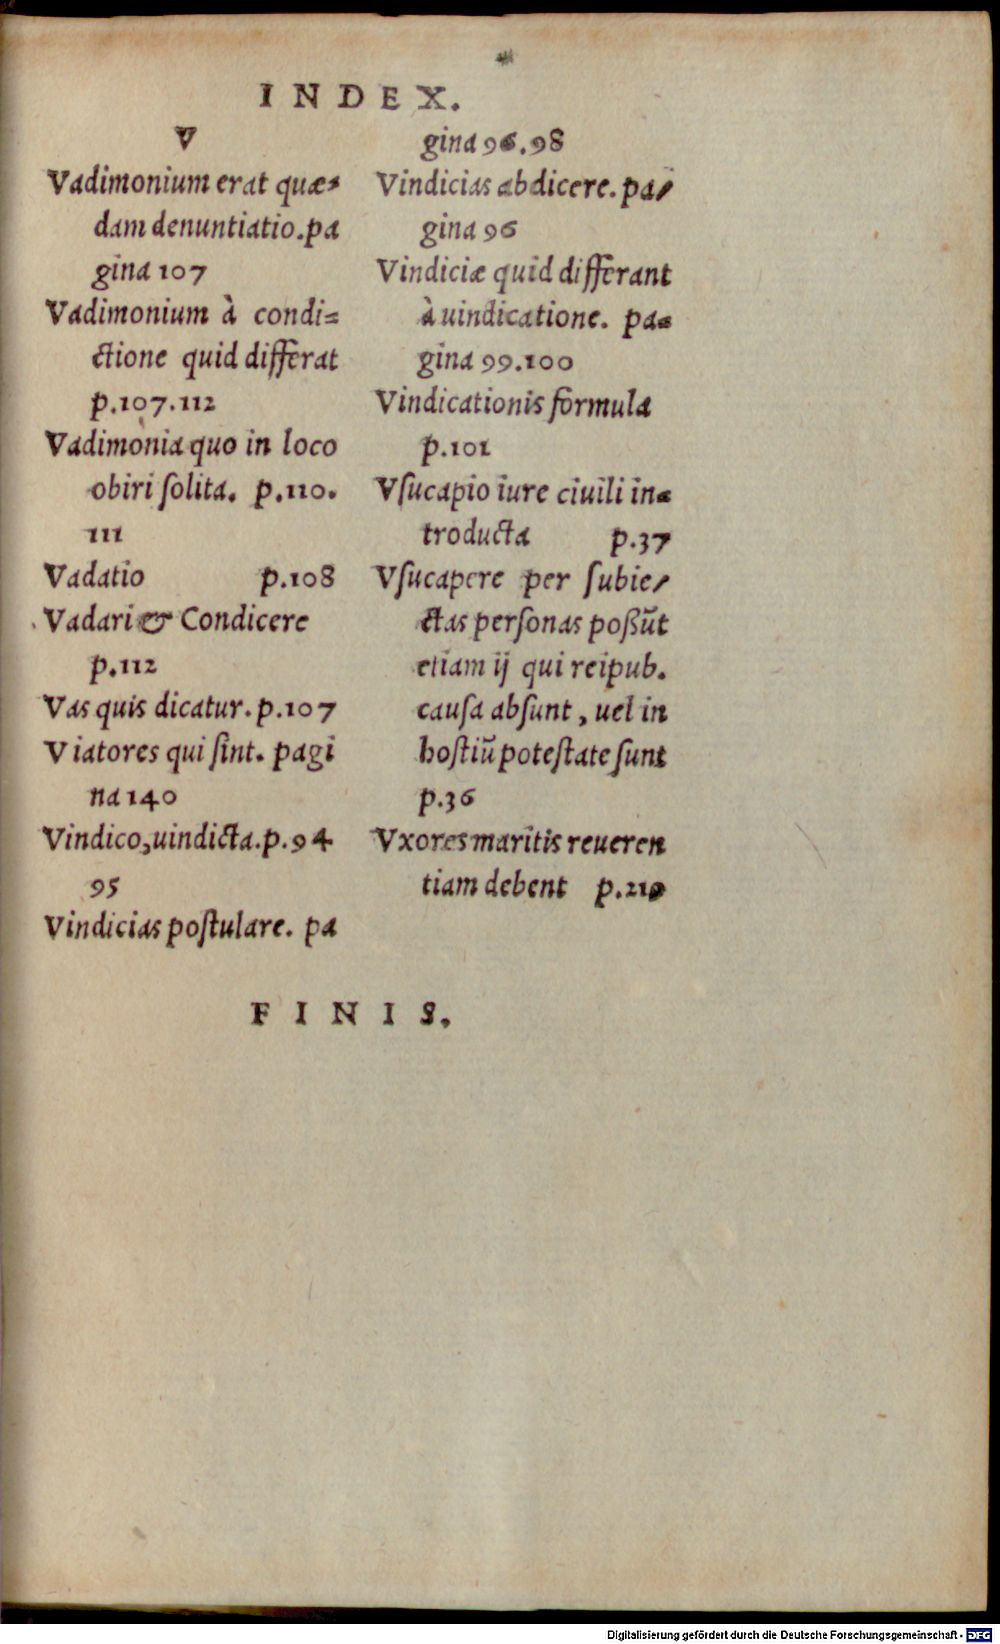 INDEX.
V
Vadimonium erat quæ-
dam denuntiatio. pa
gina 107
Vadimonium à condi=
ctione quid differat
p.107.112
Vadimonia quo in loco
obiri ſolita. p.110.
111
Vadatio p.108
Vadari & Condicere
p.112
Vas quis dicatur. p.107
Viatores qui ſint. pagi
na 140
Vindico, uindicta. p.94
95
Vindicias poſtulare. pa
gina 96.98
Vindicias abdicere. pa-
gina 96
Vindiciæ quid differant
à uindicatione. pa-
gina 99.100
Vindicationis formula
p.101
Vſucapio iure ciuili in-
troducta p.37
Vſucapere per ſubie-
ctas perſonas poßũt
etiam ij qui reipub.
cauſa abſunt, uel in
hoſtiũ poteſtate ſunt
p.36
Vxores maritis reueren
tiam debent p.210
FINIS.
Digitalisierung gefördert durch die Deutsche Forschungsgemeinschaft - DFG